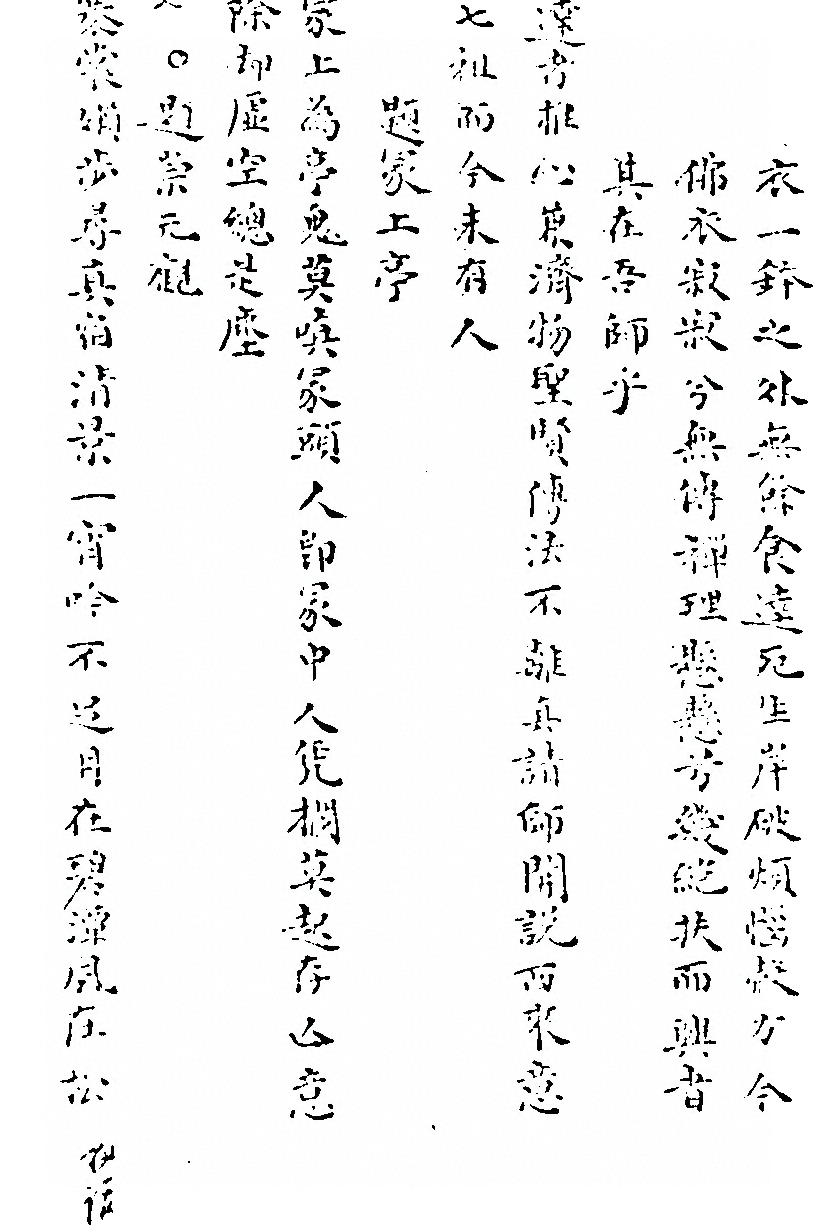 衣一鉢之外無餘食達死生岸破煩惱殼方今
佛衣寂寂兮無傳禪理懸懸兮幾絕扶而興者
其在吾師乎
達者推心兼濟物聖賢傳法不離真請師開說西來意
七祖而今未有人
題冢上亭
冢上為亭鬼莫嗔冢頭人即冢中人凭欄莫起存亡意
除却虛空總是塵
。題崇元觀
攀裳頻步尋真宿清景一宵吟不足月在碧潭風在松